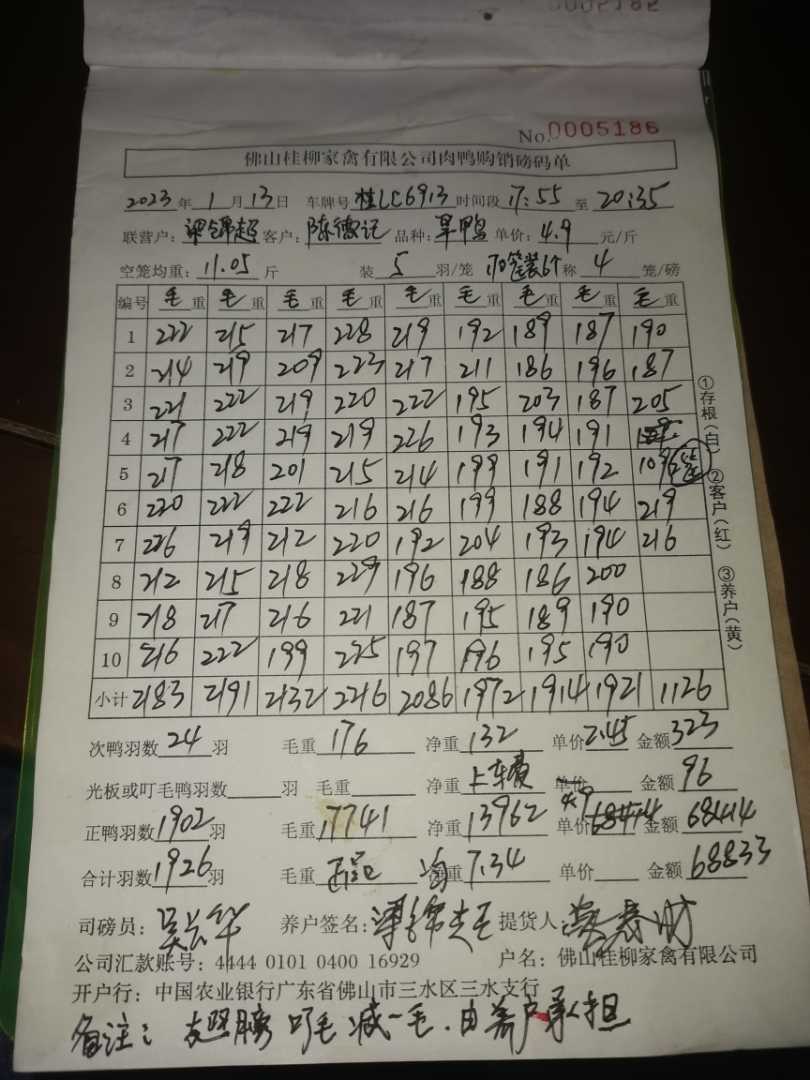 0002182
No.0005186
佛山桂柳家禽有限公司肉鸭购销磅码单
2023年1月13日 车牌号桂LC6913时间段17:55至20:35
联营户:梁锦超 客户:陈德记 品种:旱鸭 单价:4.9元/斤
空笼均重:11.05斤 装5羽/笼 称4笼/磅
编号 毛重 毛重 毛重 毛重 毛重 毛重 毛重 毛重 毛重
1 222 215 217 228 219 192 189 187 190
2 214 219 209 223 217 211 186 196 187
3 221 222 219 220 222 195 203 187 205
4 217 222 219 219 226 193 194 191
5 217 218 201 215 214 199 191 192 109
6 220 222 222 216 216 199 188 194 219
7 226 219 212 220 192 204 193 194 216
8 212 215 218 229 196 188 186 200
9 218 217 216 221 187 195 189 190
10 216 222 199 225 197 196 195 190
小计 2183 2191 2132 2216 2086 1972 1914 1921 1126
次鸭羽数24羽 毛重176 净重132 单价2.45 金额323
光板或叮毛鸭羽数 羽 毛重 净重上车费 单价 金额96
正鸭羽数1902羽 毛重17741 净重13962 单价4.9 金额68414
合计羽数1926羽 毛重 均重7.34 单价 金额68833
司磅员: 养户签名:梁锦超 提货人:
公司汇款账号:4444 0101 0400 16929 户名:佛山桂柳家禽有限公司
开户行:中国农业银行广东省佛山市三水区三水支行
备注: 叮毛减一毛.由养户承担
①存根(白)
②客户(红)
③养户(黄)